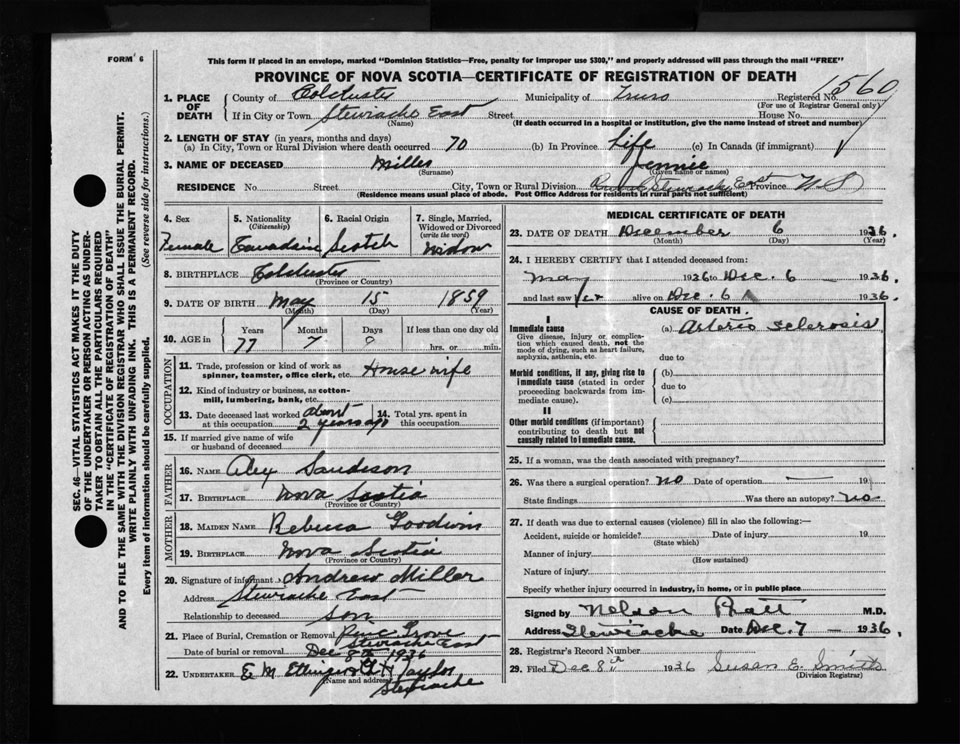 FORM 6
This form if placed in an envelope, marked "Dominion Statistics—Free, penalty for improper use $300," and properly addressed will pass through the mail "FREE"
PROVINCE OF NOVA SCOTIA—CERTIFICATE OF REGISTRATION OF DEATH
1. PLACE OF DEATH County of Colchester Municipality of Truro Registered No. 1560
(For use of Registrar General only)
If in City or Town Stewiacke East Street House No.
(Name) (If death occurred in a hospital or institution, give the name instead of street and number)
2. LENGTH OF STAY (in years, months and days)
(a) In City, Town or Rural Division where death occurred 70 (b) In Province Life (c) In Canada (if immigrant)
3. NAME OF DECEASED Miller Jennie
(Surname) (Given name or names)
RESIDENCE No. Street City, Town or Rural Division Stewiacke East Province N.S
(Residence means usual place of abode. Post Office Address for residents in rural parts not sufficient)
4. Sex 5. Nationality 6. Racial Origin 7. Single, Married, Widowed or Divorced
(Citizenship) (write the word)
Female Canadian Scotch Widow
8. BIRTHPLACE Colchester
(Province or Country)
9. DATE OF BIRTH May 15 1859
(Month) (Day) (Year)
10. AGE Years Months Days If less than one day old
77 7 hrs. or min.
OCCUPATION
11. Trade, profession or kind of work as spinner, teamster, office clerk, etc. House wife
12. Kind of industry or business, as cotton-mill, lumbering, bank, etc.
13. Date deceased last worked at this occupation about 2 years ago 14. Total yrs. spent in this occupation
15. If married give name of wife or husband of deceased
FATHER
16. NAME Alex Sandeson
17. BIRTHPLACE Nova Scotia
(Province or Country)
MOTHER
18. MAIDEN NAME Rebecca Goodwin
19. BIRTHPLACE Nova Scotia
(Province or Country)
20. Signature of informant Andrew Miller
Address Stewiacke East
Relationship to deceased son
21. Place of Burial, Cremation or Removal Pine Grove
Stewiacke East
Date of burial or removal Dec 8th 1936
22. UNDERTAKER E M Taylor
(Name and address) Stewiacke
MEDICAL CERTIFICATE OF DEATH
23. DATE OF DEATH December 6 1936
(Month) (Day) (Year)
24. I HEREBY CERTIFY that I attended deceased from:
May 1936 to Dec. 6 1936.
and last saw her alive on Dec. 6 1936.
CAUSE OF DEATH
I
Immediate cause (a) Arterio sclerosis
Give disease, injury or complication which caused death, not the mode of dying, such as heart failure, asphyxia, asthenia, etc.
due to
Morbid conditions, if any, giving rise to immediate cause (stated in order proceeding backwards from immediate cause).
(b)
due to
(c)
II
Other morbid conditions (if important) contributing to death but not causally related to immediate cause.
25. If a woman, was the death associated with pregnancy?
26. Was there a surgical operation? No Date of operation — 19
State findings Was there an autopsy? No
27. If death was due to external causes (violence) fill in also the following:—
Accident, suicide or homicide? Date of injury 19
(State which)
Manner of injury
(How sustained)
Nature of injury
Specify whether injury occurred in industry, in home, or in public place
Signed by Nelson Pratt M.D.
Address Stewiacke Date Dec. 7 — 1936.
28. Registrar's Record Number
29. Filed Dec 8th 1936 Susan E. Smith
(Division Registrar)
SEC. 46—VITAL STATISTICS ACT MAKES IT THE DUTY
OF THE UNDERTAKER OR PERSON ACTING AS UNDER-
TAKER TO OBTAIN ALL THE PARTICULARS REQUIRED
IN THE "CERTIFICATE OF REGISTRATION OF DEATH"
AND TO FILE THE SAME WITH THE DIVISION REGISTRAR WHO SHALL ISSUE THE BURIAL PERMIT.
WRITE PLAINLY WITH UNFADING INK. THIS IS A PERMANENT RECORD.
Every item of information should be carefully supplied. (See reverse side for instructions.)